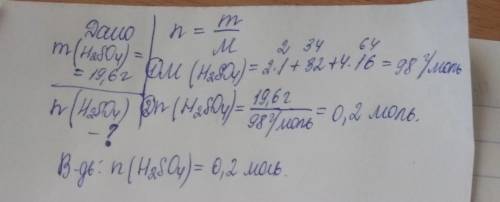 Дано
m(H₂SO₄)=
= 19,6г
n(H₂SO₄)
– ?
n = m/M
2 34 64
① M(H₂SO₄)=2·1+32+4·16=98 г/моль
② n(H₂SO₄)= 19,6г / 98 г/моль = 0,2 моль.
В-дь: n(H₂SO₄)=0,2 моль.